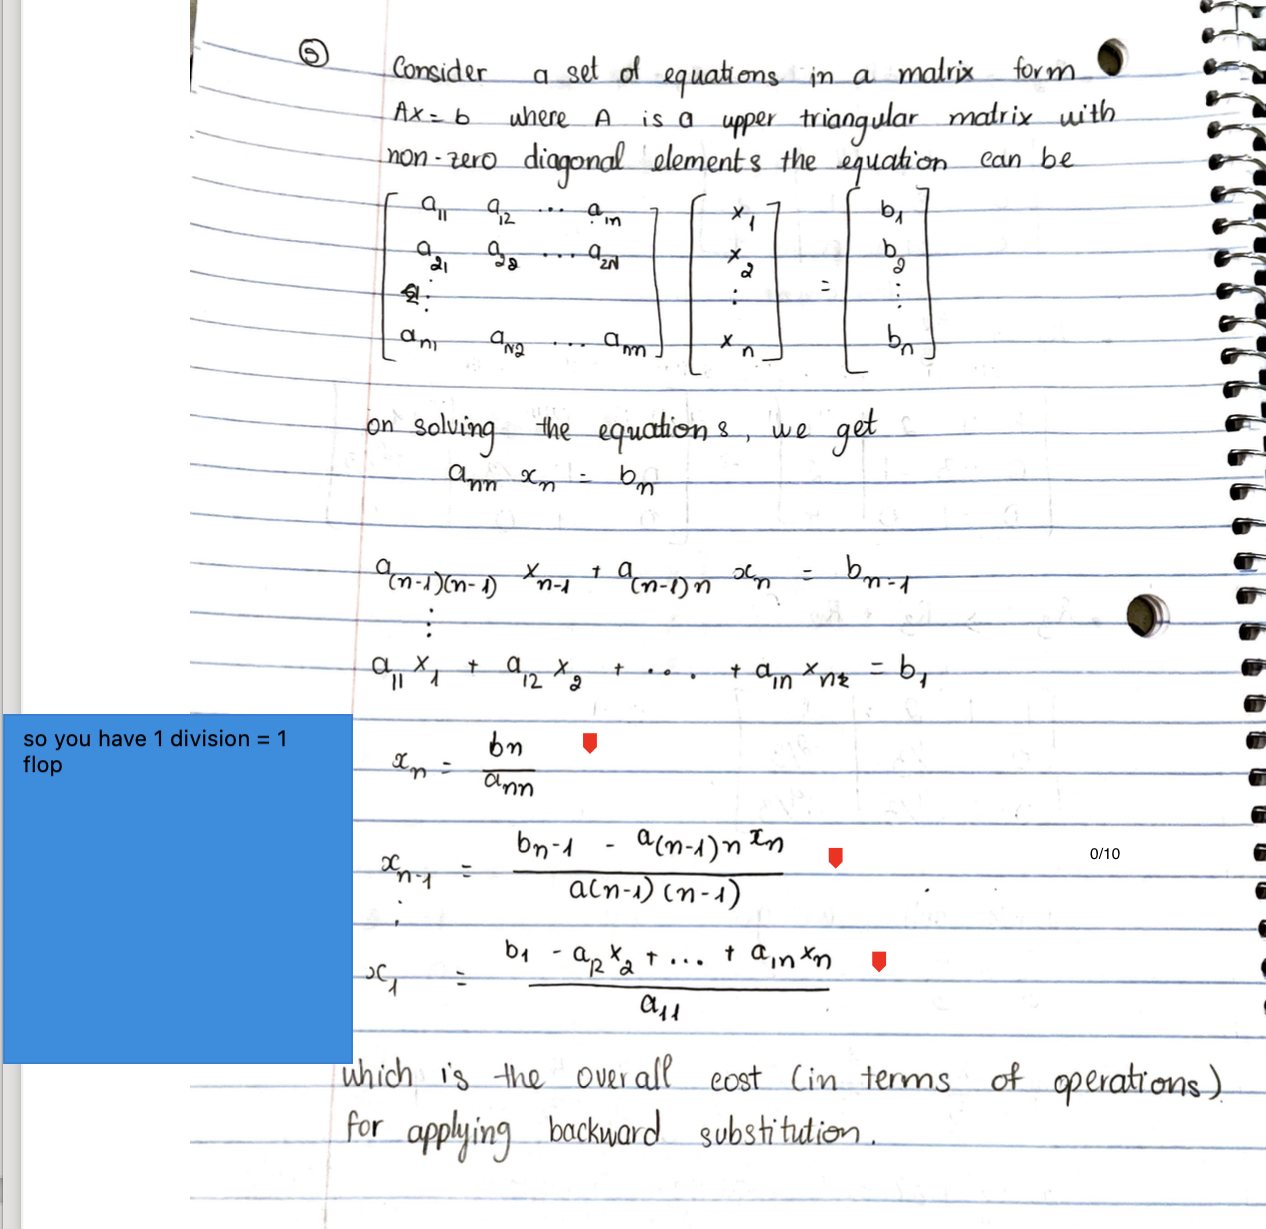 5
Consider a set of equations in a matrix form
Ax = b where A is a upper triangular matrix with
non-zero diagonal elements the equation can be
[ a11 a12 ... a1n ] [ x1 ] [ b1 ]
[ a21 a22 ... a2N ] [ x2 ] [ b2 ]
[ ⋮ ] [ ⋮ ] = [ ⋮ ]
[ an1 aN2 ... ann ] [ xn ] [ bn ]
on solving the equations, we get
ann xn = bn
a(n-1)(n-1) xn-1 + a(n-1)n xn = bn-1
⋮
a11 x1 + a12 x2 + .... + a1n xn = b1
so you have 1 division = 1
flop
xn = bn / ann
xn-1 = bn-1 - a(n-1)n xn / a(n-1)(n-1)
0/10
⋮
x1 = b1 - a12 x2 + ... + a1n xn / a11
which is the overall cost (in terms of operations)
for applying backward substitution.